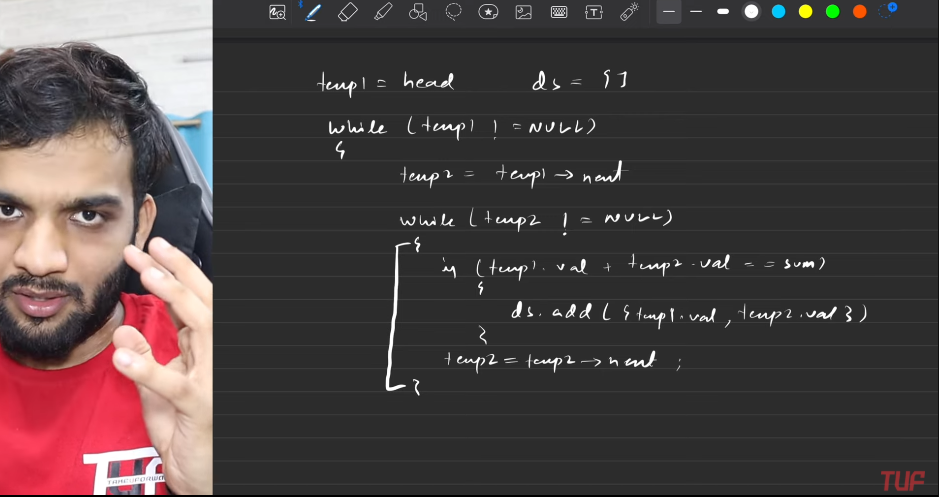 temp1 = head ds = {}
while (temp1 != NULL)
{
temp2 = temp1 → next
while (temp2 != NULL)
{
if (temp1.val + temp2.val == sum)
{
ds.add({temp1.val, temp2.val})
}
temp2 = temp2 → next ;
}
T
TAKEUFORWARD
TUF